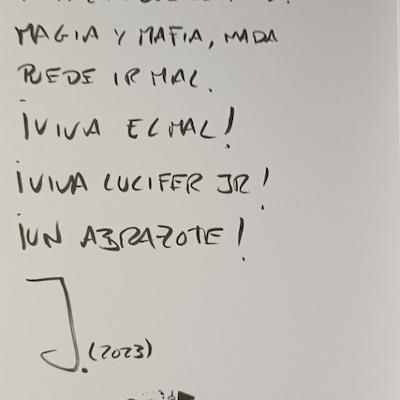 MAGIA Y MAFIA, NADA
PUEDE IR MAL.
¡VIVA EL MAL!
¡VIVA LUCIFER JR!
¡UN ABRAZOTE!
J.(2023)